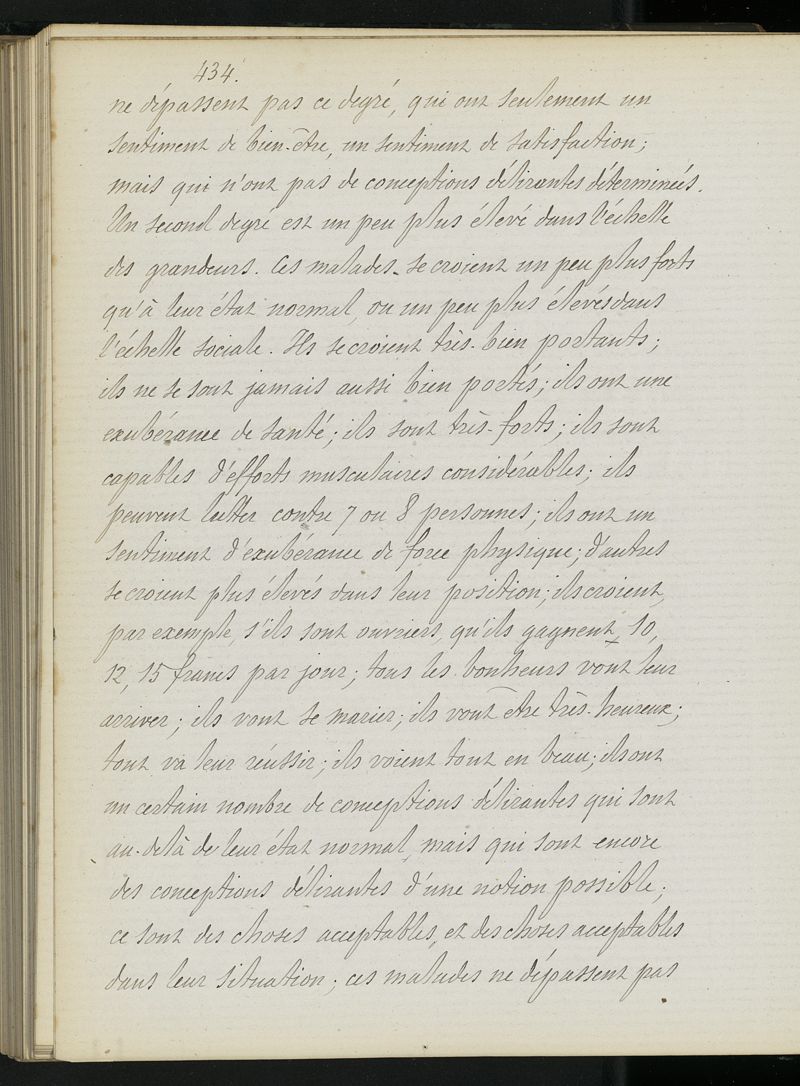 434.
ne dépassent pas ce degré, qui ont seulement un
sentiment de bien-être, un sentiment de satisfaction;
mais qui n'ont pas de conceptions délirantes déterminées.
Un second degré est un peu plus élevé dans l'échelle
des grandeurs. Ces malades se croient un peu plus forts
qu'à leur état normal, ou un peu plus élevés dans
l'échelle sociale. Ils se croient très-bien portants;
ils ne se sont jamais aussi bien portés; ils ont une
exubérance de santé; ils sont très-forts; ils sont
capables d'efforts musculaires considérables; ils
peuvent lutter contre 7 ou 8 personnes; ils ont un
sentiment d'exubérance de force physique; d'autres
se croient plus élevés dans leur position; ils croient,
par exemple, s'ils sont ouvriers, qu'ils gagnent 10,
12, 15 francs par jour; tous les bonheurs vont leur
arriver; ils vont se marier; ils vont être très-heureux;
tout va leur réussir; ils voient tout en beau; ils ont
un certain nombre de conceptions délirantes qui sont
au-delà de leur état normal, mais qui sont encore
des conceptions délirantes d'une notion possible;
ce sont des choses acceptables, et des choses acceptables
dans leur situation; ces malades ne dépassent pas